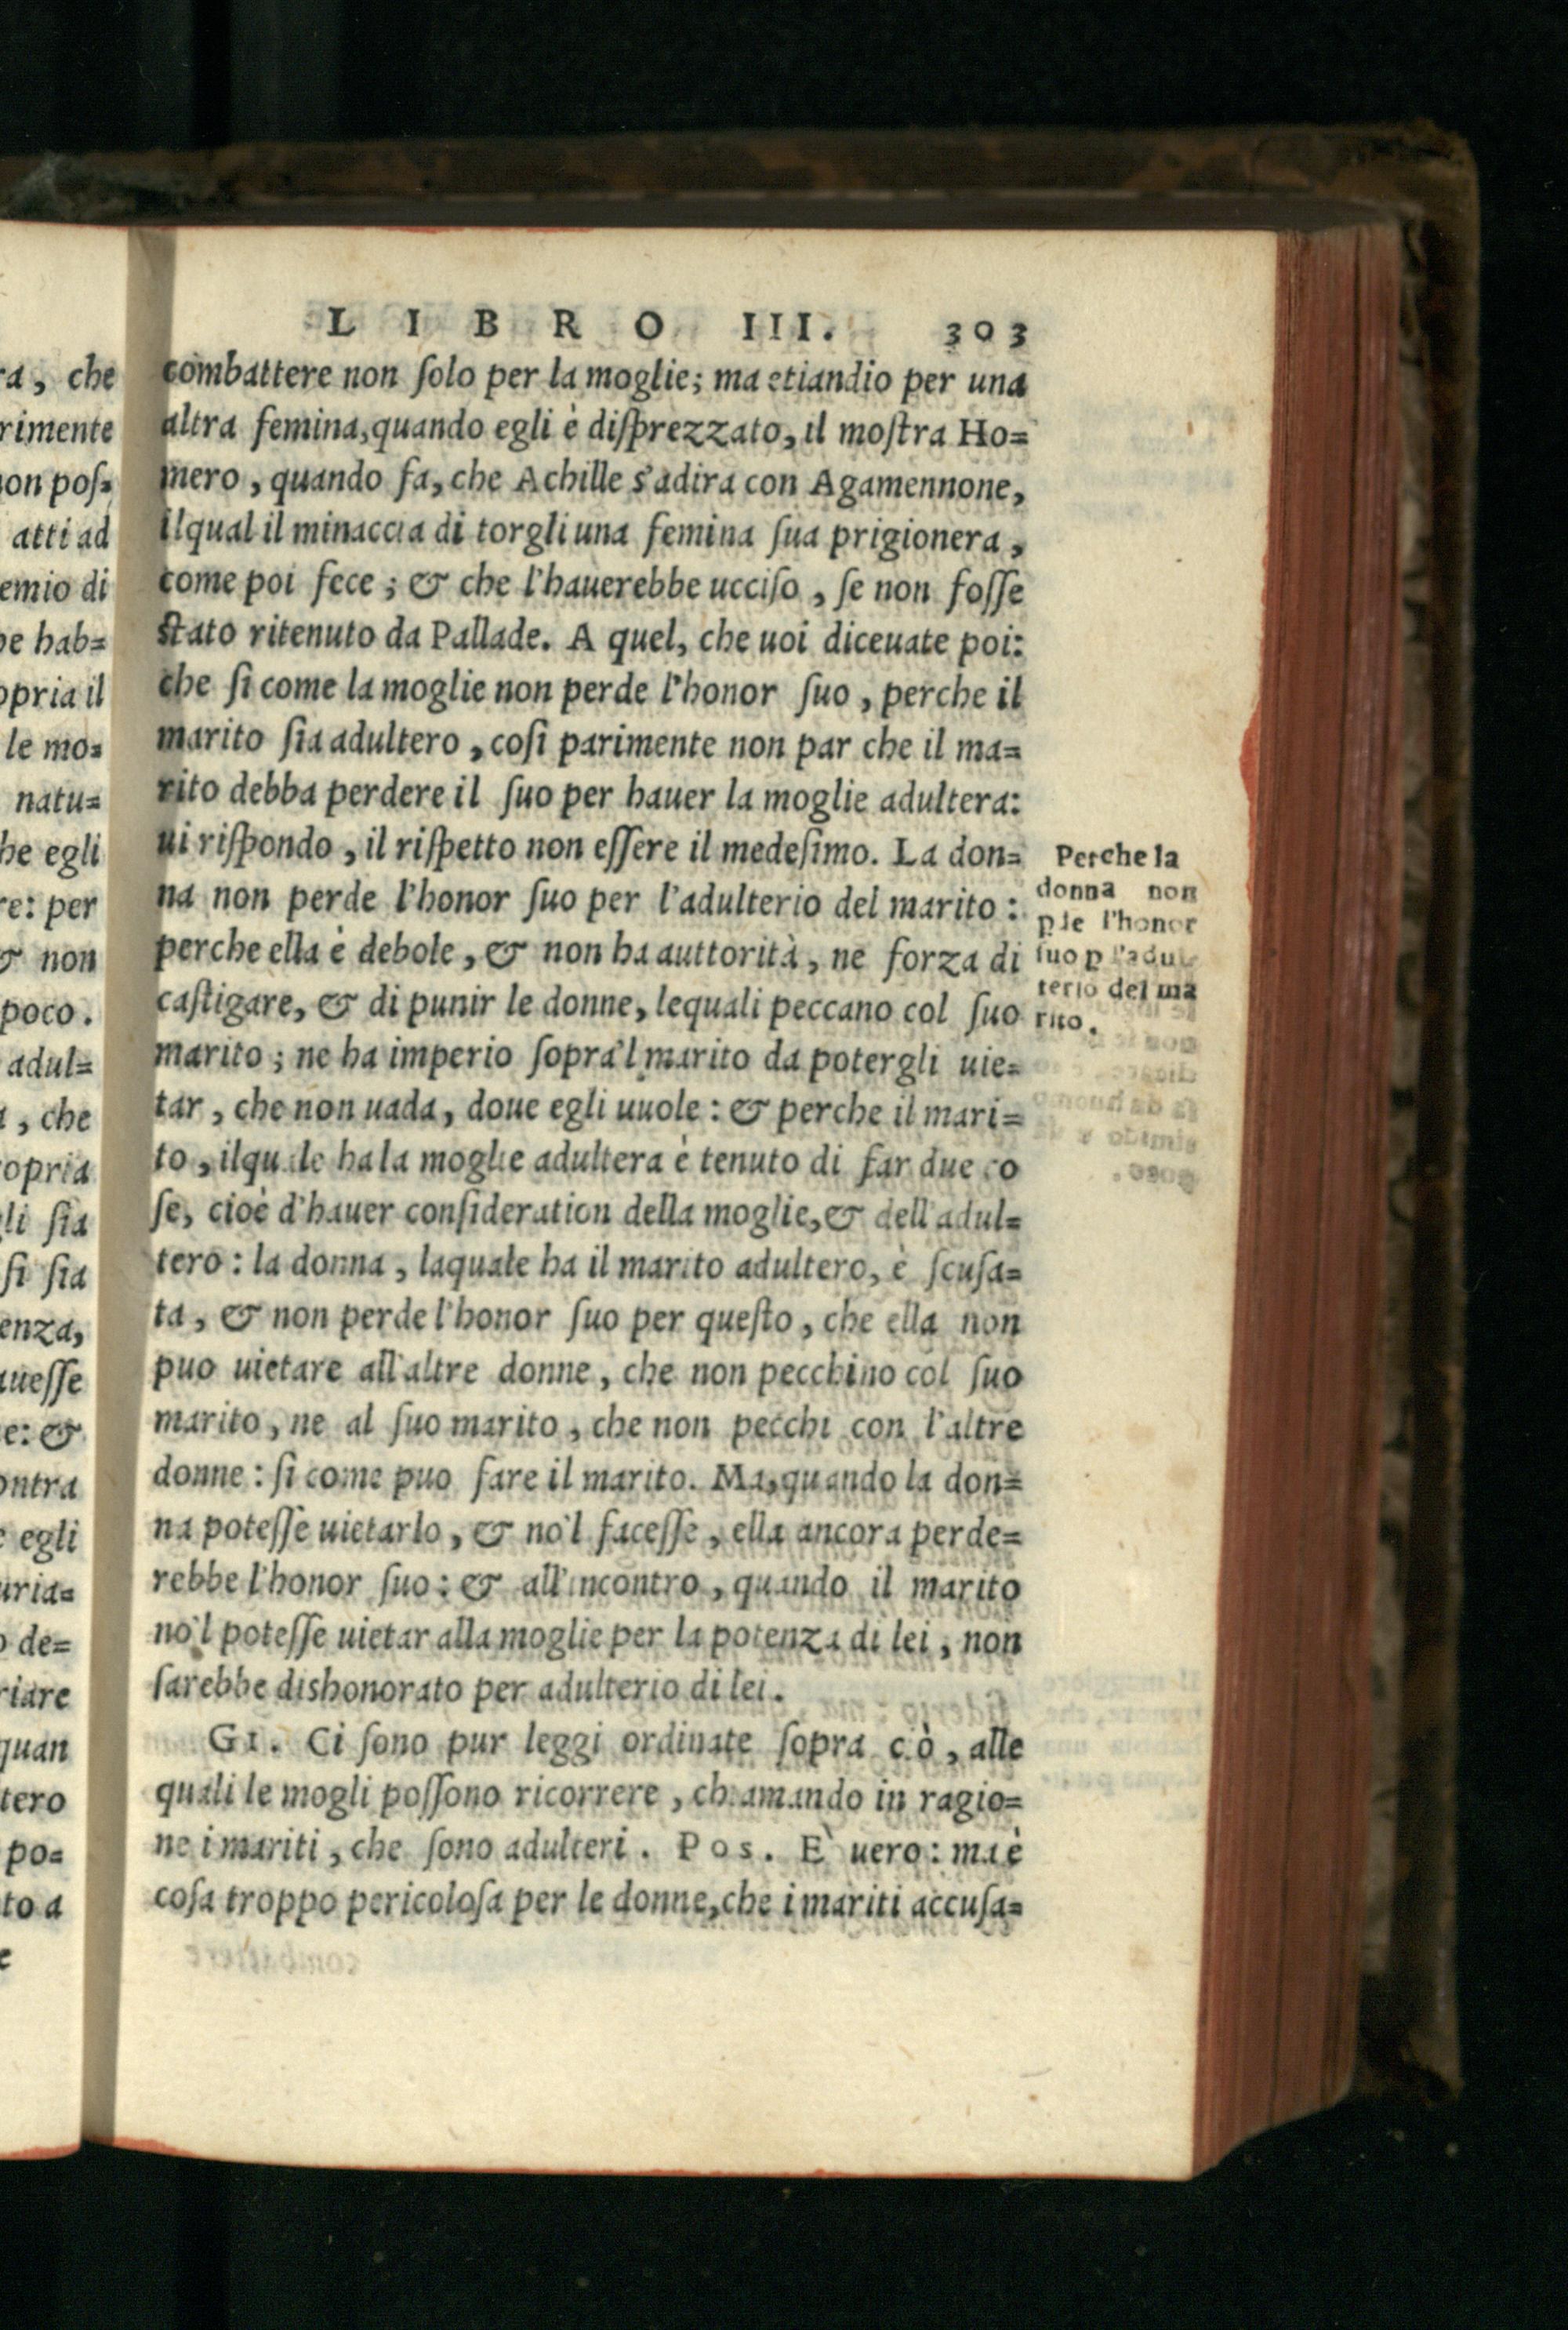 LIBRO III. 303
combattere non ſolo per la moglie; ma etiandio per una
altra femina, quando egli è diſprezzato, il moſtra Ho=
mero, quando fa, che Achille s'adira con Agamennone,
ilqual il minaccia di torgli una femina ſua prigionera,
come poi fece; & che l'hauerebbe ucciſo, ſe non foſſe
ſtato ritenuto da Pallade. A quel, che uoi diceuate poi:
che ſi come la moglie non perde l'honor ſuo, perche il
marito ſia adultero, coſi parimente non par che il ma=
rito debba perdere il ſuo per hauer la moglie adultera:
ui riſpondo, il riſpetto non eſſere il medeſimo. La don=
na non perde l'honor ſuo per l'adulterio del marito:
perche ella è debole, & non ha auttorità, ne forza di
caſtigare, & di punir le donne, lequali peccano col ſuo
marito; ne ha imperio ſopra'l marito da potergli uie=
tar, che non uada, doue egli uuole: & perche il mari=
to, ilquale ha la moglie adultera è tenuto di far due co
ſe, cioè d'hauer conſideration della moglie, & dell'adul=
tero: la donna, laquale ha il marito adultero, è ſcuſa=
ta, & non perde l'honor ſuo per queſto, che ella non
puo uietare all'altre donne, che non pecchino col ſuo
marito, ne al ſuo marito, che non pecchi con l'altre
donne: ſi come puo fare il marito. Ma, quando la don=
na poteſſe uietarlo, & no'l faceſſe, ella ancora perde=
rebbe l'honor ſuo: & all'incontro, quando il marito
no'l poteſſe uietar alla moglie per la potenza di lei, non
ſarebbe dishonorato per adulterio di lei.
GI. Ci ſono pur leggi ordinate ſopra ciò, alle
quali le mogli poſſono ricorrere, chiamando in ragio=
ne i mariti, che ſono adulteri. Pos. E` uero: ma è
coſa troppo pericoloſa per le donne, che i mariti accuſa=
Perche la
donna non
pde l'honor
ſuo p l'adul
terio del ma
rito.
ra, che
rimente
non poſ=
atti ad
emio di
be hab=
opria il
le mo=
natu=
he egli
re: per
& non
poco.
adul=
, che
opria
li ſia
ſi ſia
enza,
ueſſe
e: &
ontra
egli
uria=
de=
riare
quan
tero
po=
to a
e